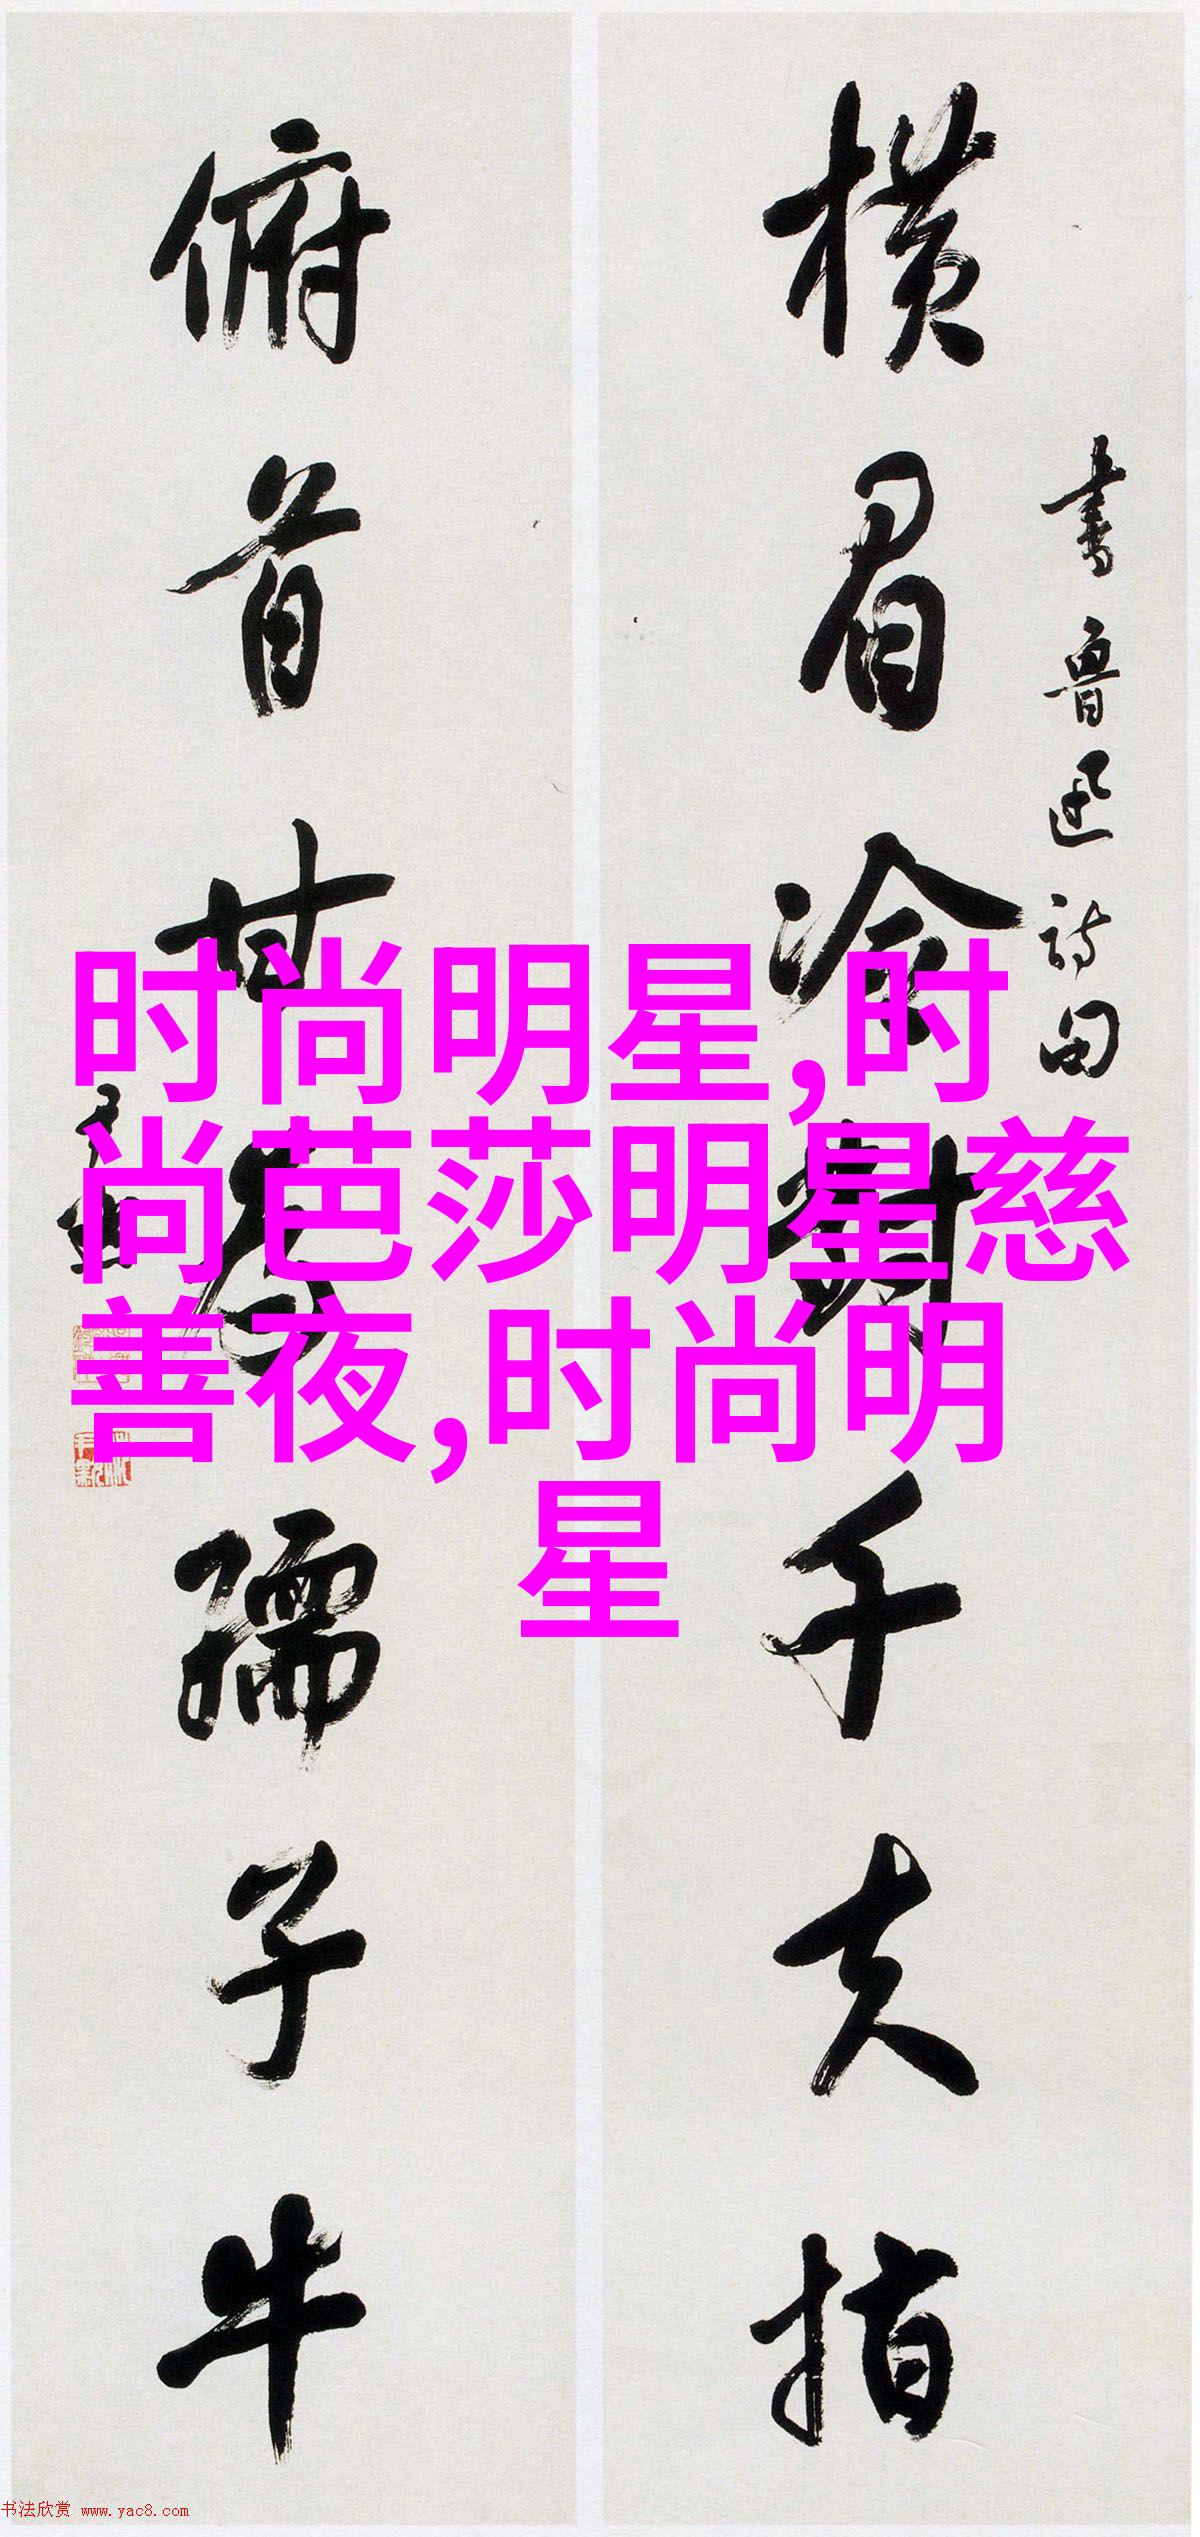 横眉冷对千夫指
书鲁迅诗句
俯首甘为孺子牛
时尚明星,时
尚芭莎明星慈
善夜,时尚明
星
书法欣赏 www.yac8.com